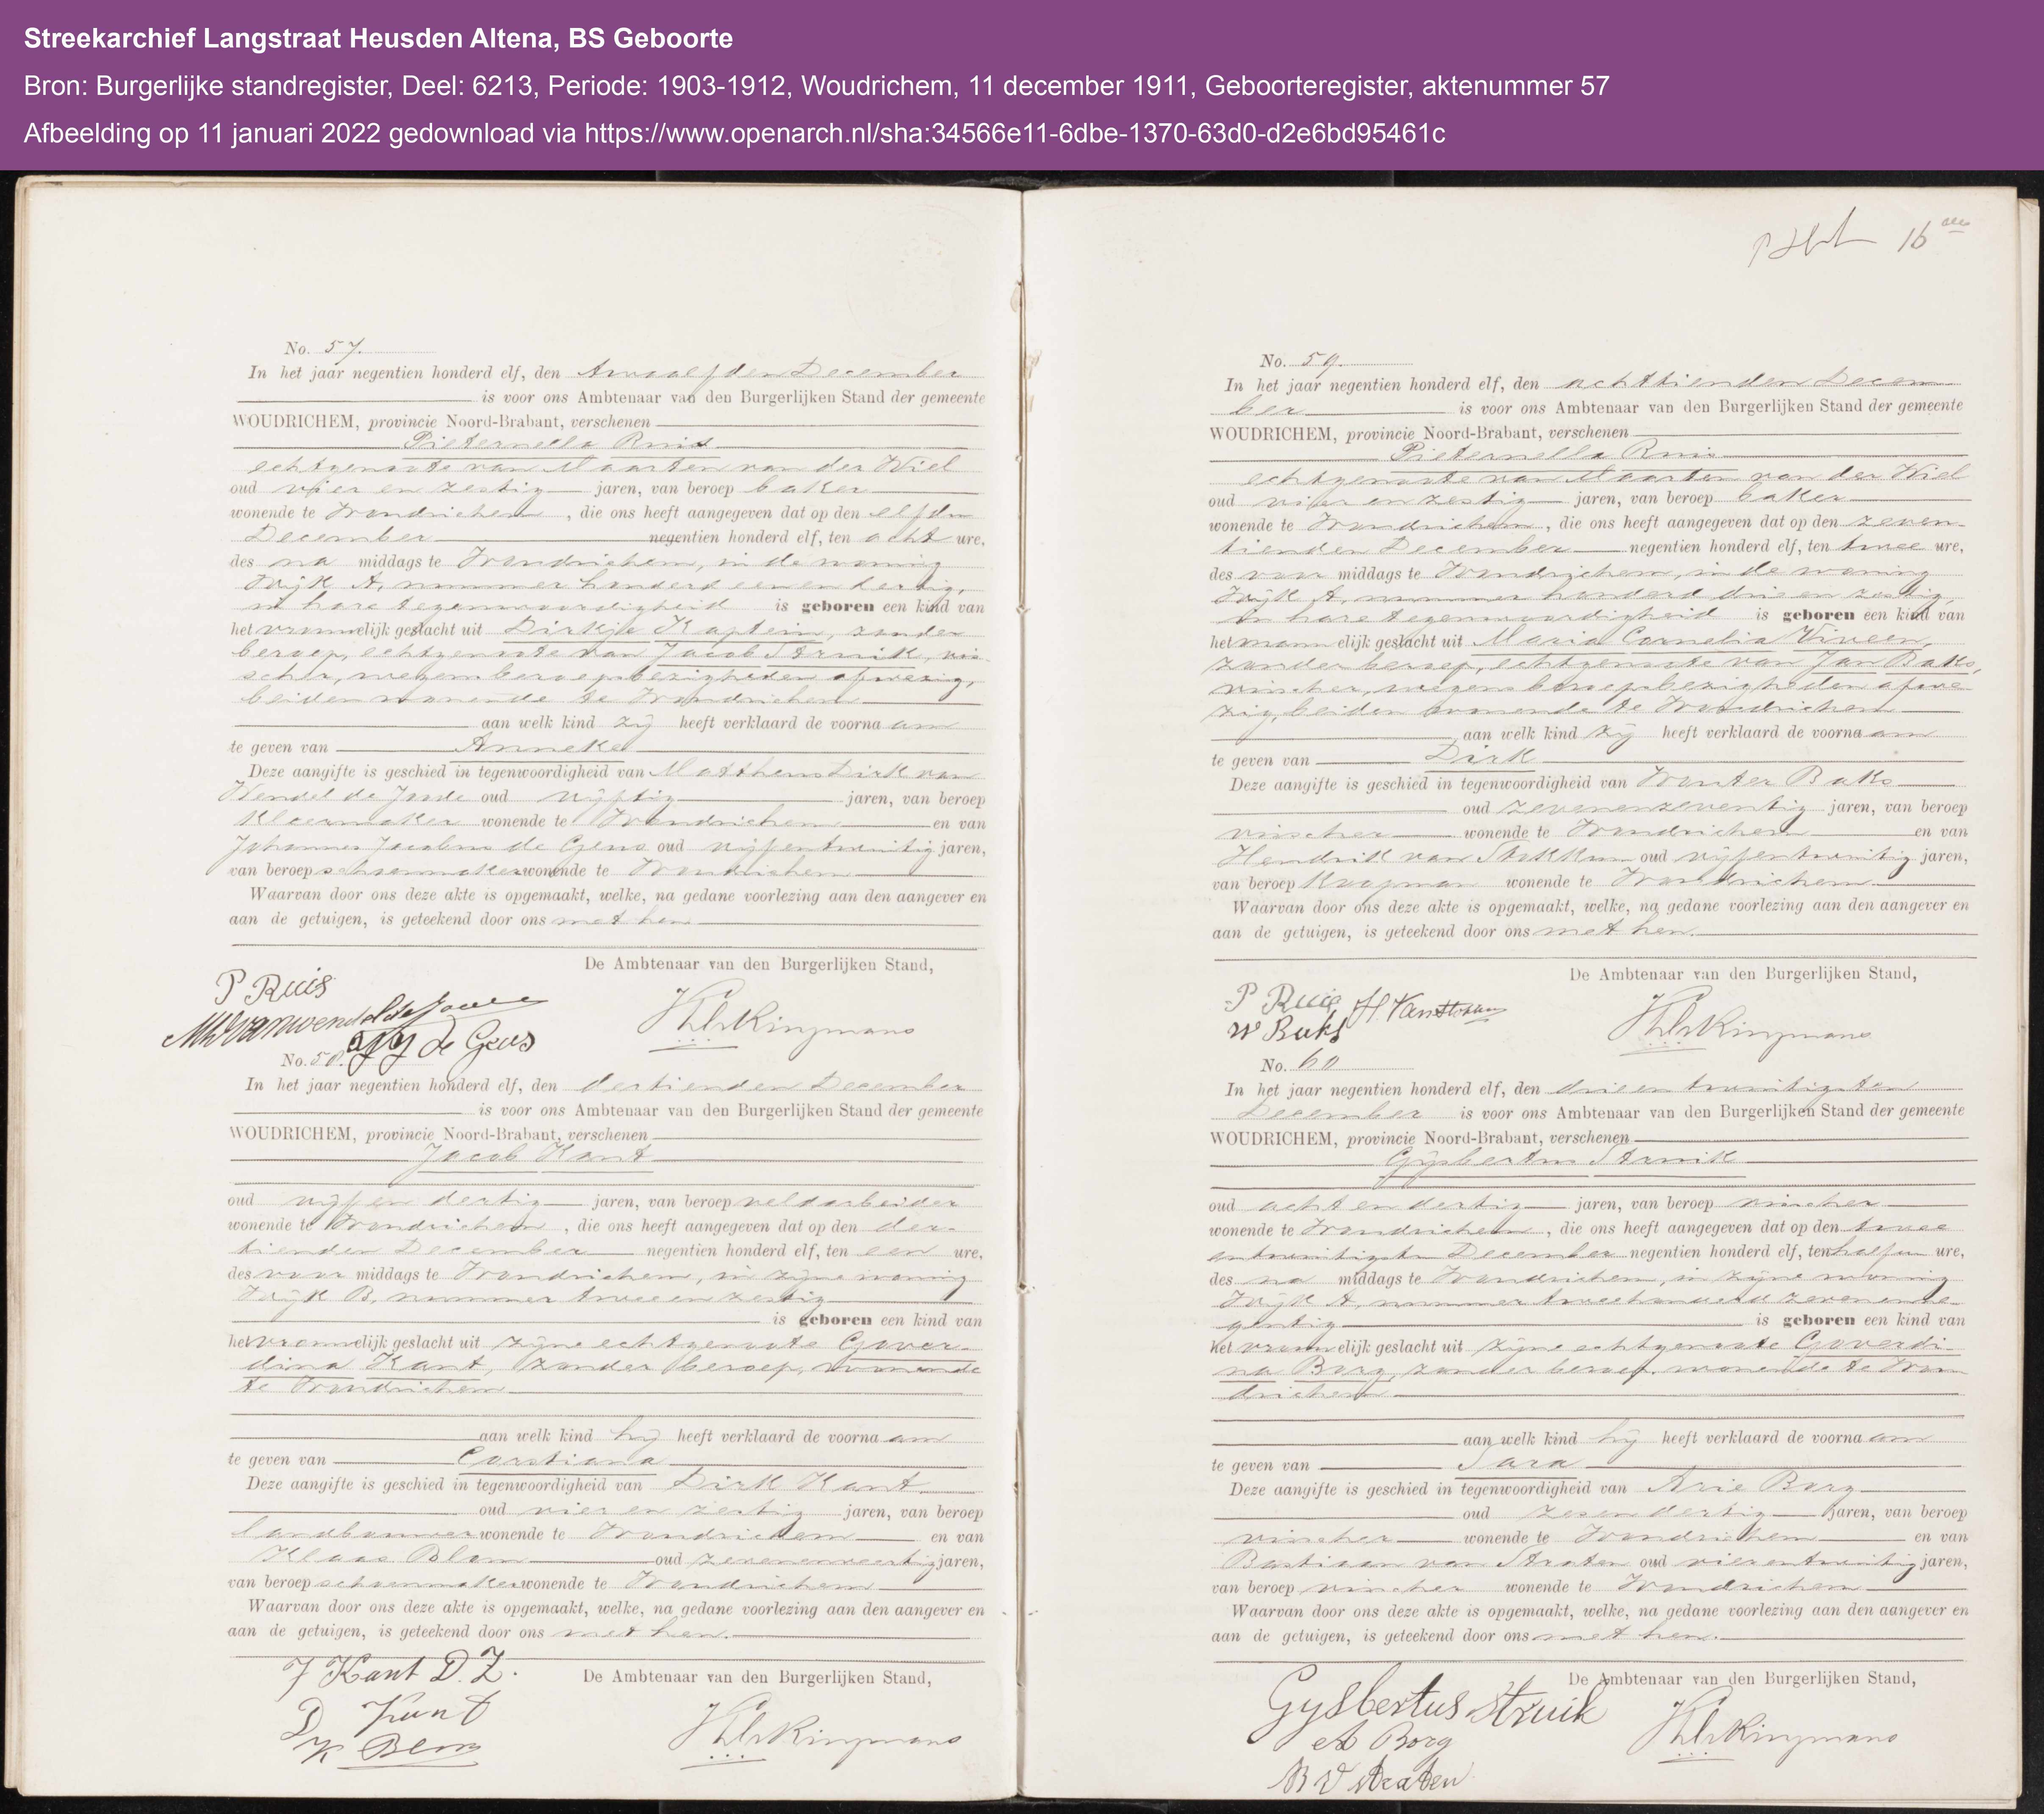 Streekarchief Langstraat Heusden Altena, BS Geboorte
Bron: Burgerlijke standregister, Deel: 6213, Periode: 1903-1912, Woudrichem, 11 december 1911, Geboorteregister, aktenummer 57
Afbeelding op 11 januari 2022 gedownload via https://www.openarch.nl/sha:34566e11-6dbe-1370-63d0-d2e6bd95461c
No. 57.
In het jaar negentien honderd elf, den twaalfden December
is voor ons Ambtenaar van den Burgerlijken Stand der gemeente
WOUDRICHEM, provincie Noord-Brabant, verschenen
Pieternella Ruis
echtgenoote van Maarten van der Wiel
oud vier en zestig jaren, van beroep baker
wonende te Woudrichem, die ons heeft aangegeven dat op den elfden
December negentien honderd elf, ten acht ure,
des na middags te Woudrichem, in de woning
Wijk A, nummer honderd een en dertig,
in hare tegenwoordigheid is geboren een kind van
het vrouwelijk geslacht uit Dirkje Kaptein, zonder
beroep, echtgenoote van Jacob Struik, vis-
scher, wegens beroepsbezigheden afwezig,
beiden wonende te Woudrichem
aan welk kind zij heeft verklaard de voornaam
te geven van Anneke
Deze aangifte is geschied in tegenwoordigheid van Mattheus Dirk van
Wendel de Joode oud vijftig jaren, van beroep
kleermaker wonende te Woudrichem en van
Johannes Jacobus de Geus oud vijfentwintig jaren,
van beroep schoenmaker wonende te Woudrichem
Waarvan door ons deze akte is opgemaakt, welke, na gedane voorlezing aan den aangever en
aan de getuigen, is geteekend door ons met hen
De Ambtenaar van den Burgerlijken Stand,
P Ruis
MDvanwendeldeJoode
JJ de Geus
No. 58.
In het jaar negentien honderd elf, den dertienden December
is voor ons Ambtenaar van den Burgerlijken Stand der gemeente
WOUDRICHEM, provincie Noord-Brabant, verschenen
Jacob Kant
oud vijf en dertig jaren, van beroep veldarbeider
wonende te Woudrichem, die ons heeft aangegeven dat op den der-
tienden December negentien honderd elf, ten een ure,
des voor middags te Woudrichem, in zijne woning
Wijk B, nummer twee en zestig
is geboren een kind van
het vrouwelijk geslacht uit zijne echtgenoote Gover-
dina Kant, zonder beroep, wonende
te Woudrichem
aan welk kind hij heeft verklaard de voornaam
te geven van Corstiana
Deze aangifte is geschied in tegenwoordigheid van Dirk Kant,
oud vier en zestig jaren, van beroep
landbouwer wonende te Woudrichem en van
Klaas Blom oud zevenenveertig jaren,
van beroep schoenmaker wonende te Woudrichem
Waarvan door ons deze akte is opgemaakt, welke, na gedane voorlezing aan den aangever en
aan de getuigen, is geteekend door ons met hen.
De Ambtenaar van den Burgerlijken Stand,
J Kant D.Z.
D Kant
K Blom
16
No. 59.
In het jaar negentien honderd elf, den achttienden Decem-
ber is voor ons Ambtenaar van den Burgerlijken Stand der gemeente
WOUDRICHEM, provincie Noord-Brabant, verschenen
Pieternella Ruis
echtgenoote van Maarten van der Wiel
oud vier en zestig jaren, van beroep baker
wonende te Woudrichem, die ons heeft aangegeven dat op den zeven-
tienden December negentien honderd elf, ten twee ure,
des voor middags te Woudrichem, in de woning
Wijk A, nummer honderd drie en zestig,
in hare tegenwoordigheid is geboren een kind van
het mannelijk geslacht uit Maria Cornelia Viveen,
zonder beroep, echtgenoote van Jan Baks,
visscher, wegens beroepsbezigheden afwe-
zig, beiden wonende te Woudrichem
aan welk kind zij heeft verklaard de voornaam
te geven van Dirk
Deze aangifte is geschied in tegenwoordigheid van Wouter Baks
oud zevenenzeventig jaren, van beroep
visscher wonende te Woudrichem en van
Hendrik van Stekkum oud vijfentwintig jaren,
van beroep koopman wonende te Woudrichem
Waarvan door ons deze akte is opgemaakt, welke, na gedane voorlezing aan den aangever en
aan de getuigen, is geteekend door ons met hen.
De Ambtenaar van den Burgerlijken Stand,
P Ruis
W Baks
No. 60
In het jaar negentien honderd elf, den drie en twintigsten
December is voor ons Ambtenaar van den Burgerlijken Stand der gemeente
WOUDRICHEM, provincie Noord-Brabant, verschenen
Gijsbertus Struik
oud acht en dertig jaren, van beroep visscher
wonende te Woudrichem, die ons heeft aangegeven dat op den twee
entwintigsten December negentien honderd elf, ten half een ure,
des na middags te Woudrichem, in zijne woning
Wijk A, nummer tweehonderd zevenene-
gentig is geboren een kind van
het vrouwelijk geslacht uit zijne echtgenoote Goverdi-
na Borg, zonder beroep, wonende te Wou-
drichem
aan welk kind hij heeft verklaard de voornaam
te geven van Sara
Deze aangifte is geschied in tegenwoordigheid van Arie Borg
oud zesendertig jaren, van beroep
visscher wonende te Woudrichem en van
Bastiaan van Straten oud vierentwintig jaren,
van beroep visscher wonende te Woudrichem
Waarvan door ons deze akte is opgemaakt, welke, na gedane voorlezing aan den aangever en
aan de getuigen, is geteekend door ons met hen.
De Ambtenaar van den Burgerlijken Stand,
Gysbertus Struik
A Borg
B V straten